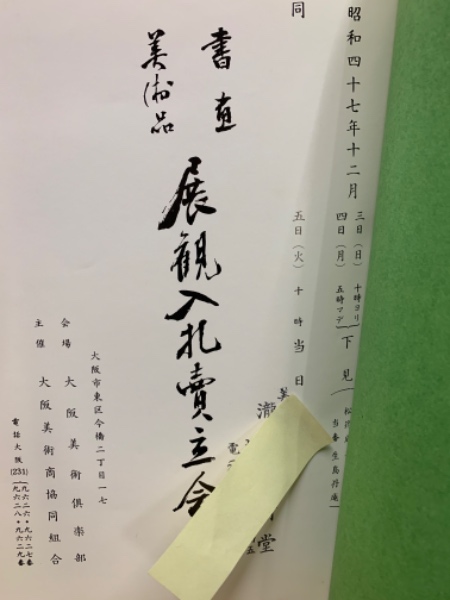 昭和四十七年十二月
三日(日)
四日(月)
十時ヨリ
五時マデ
下見
同
五日(火)十時当日
瀧
堂
書画
美術品
展観入札賣立会
大阪市東区今橋二丁目一七
会場 大阪美術俱楽部
主催 大阪美術商協同組合
電話大阪(231)
九六二六・九六二七番
九六二八・九六二九番